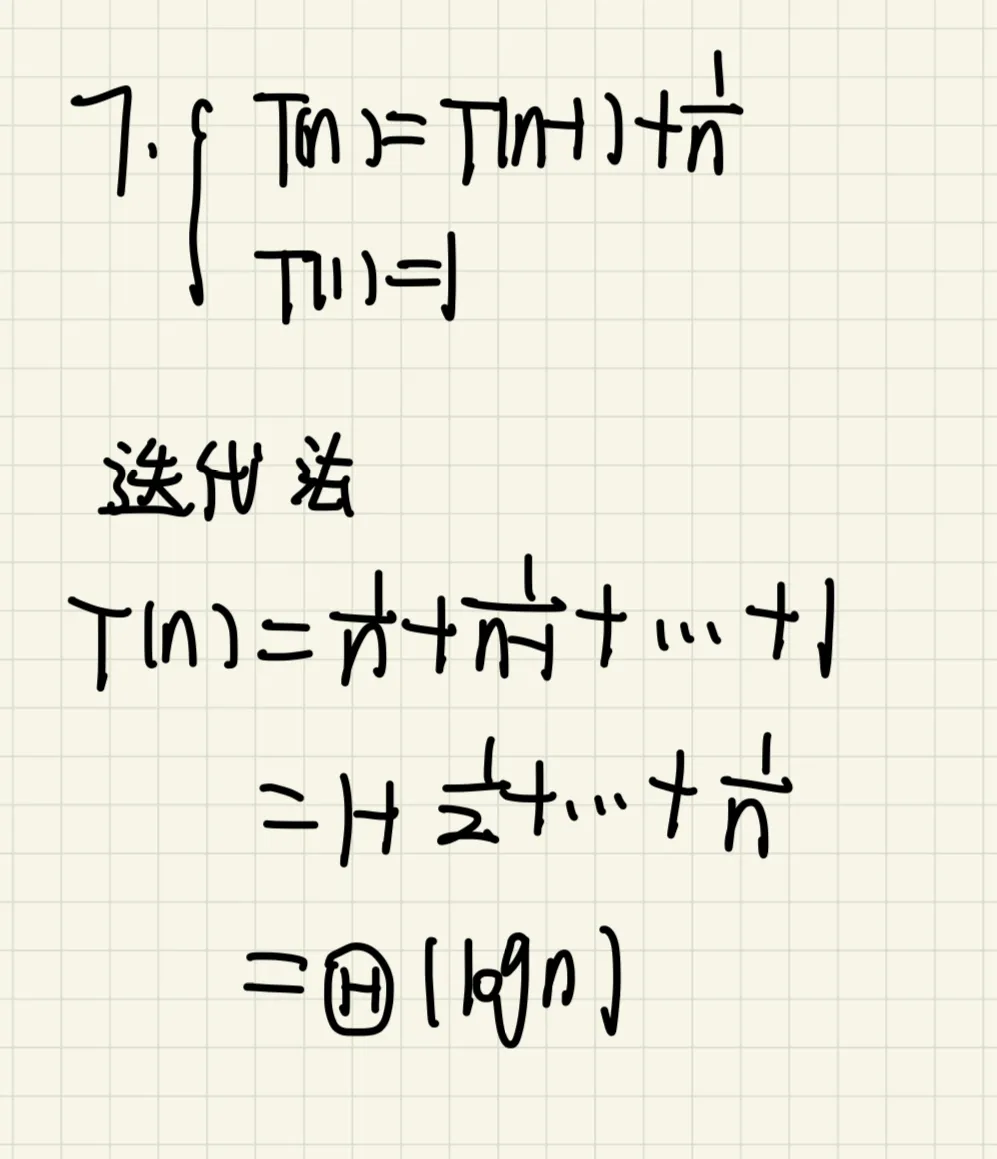 7. { T(n) = T(n-1) + 1/n
T(1) = 1
迭代法
T(n) = 1/n + 1/(n-1) + ... + 1
= 1 + 1/2 + ... + 1/n
= Θ(logn)